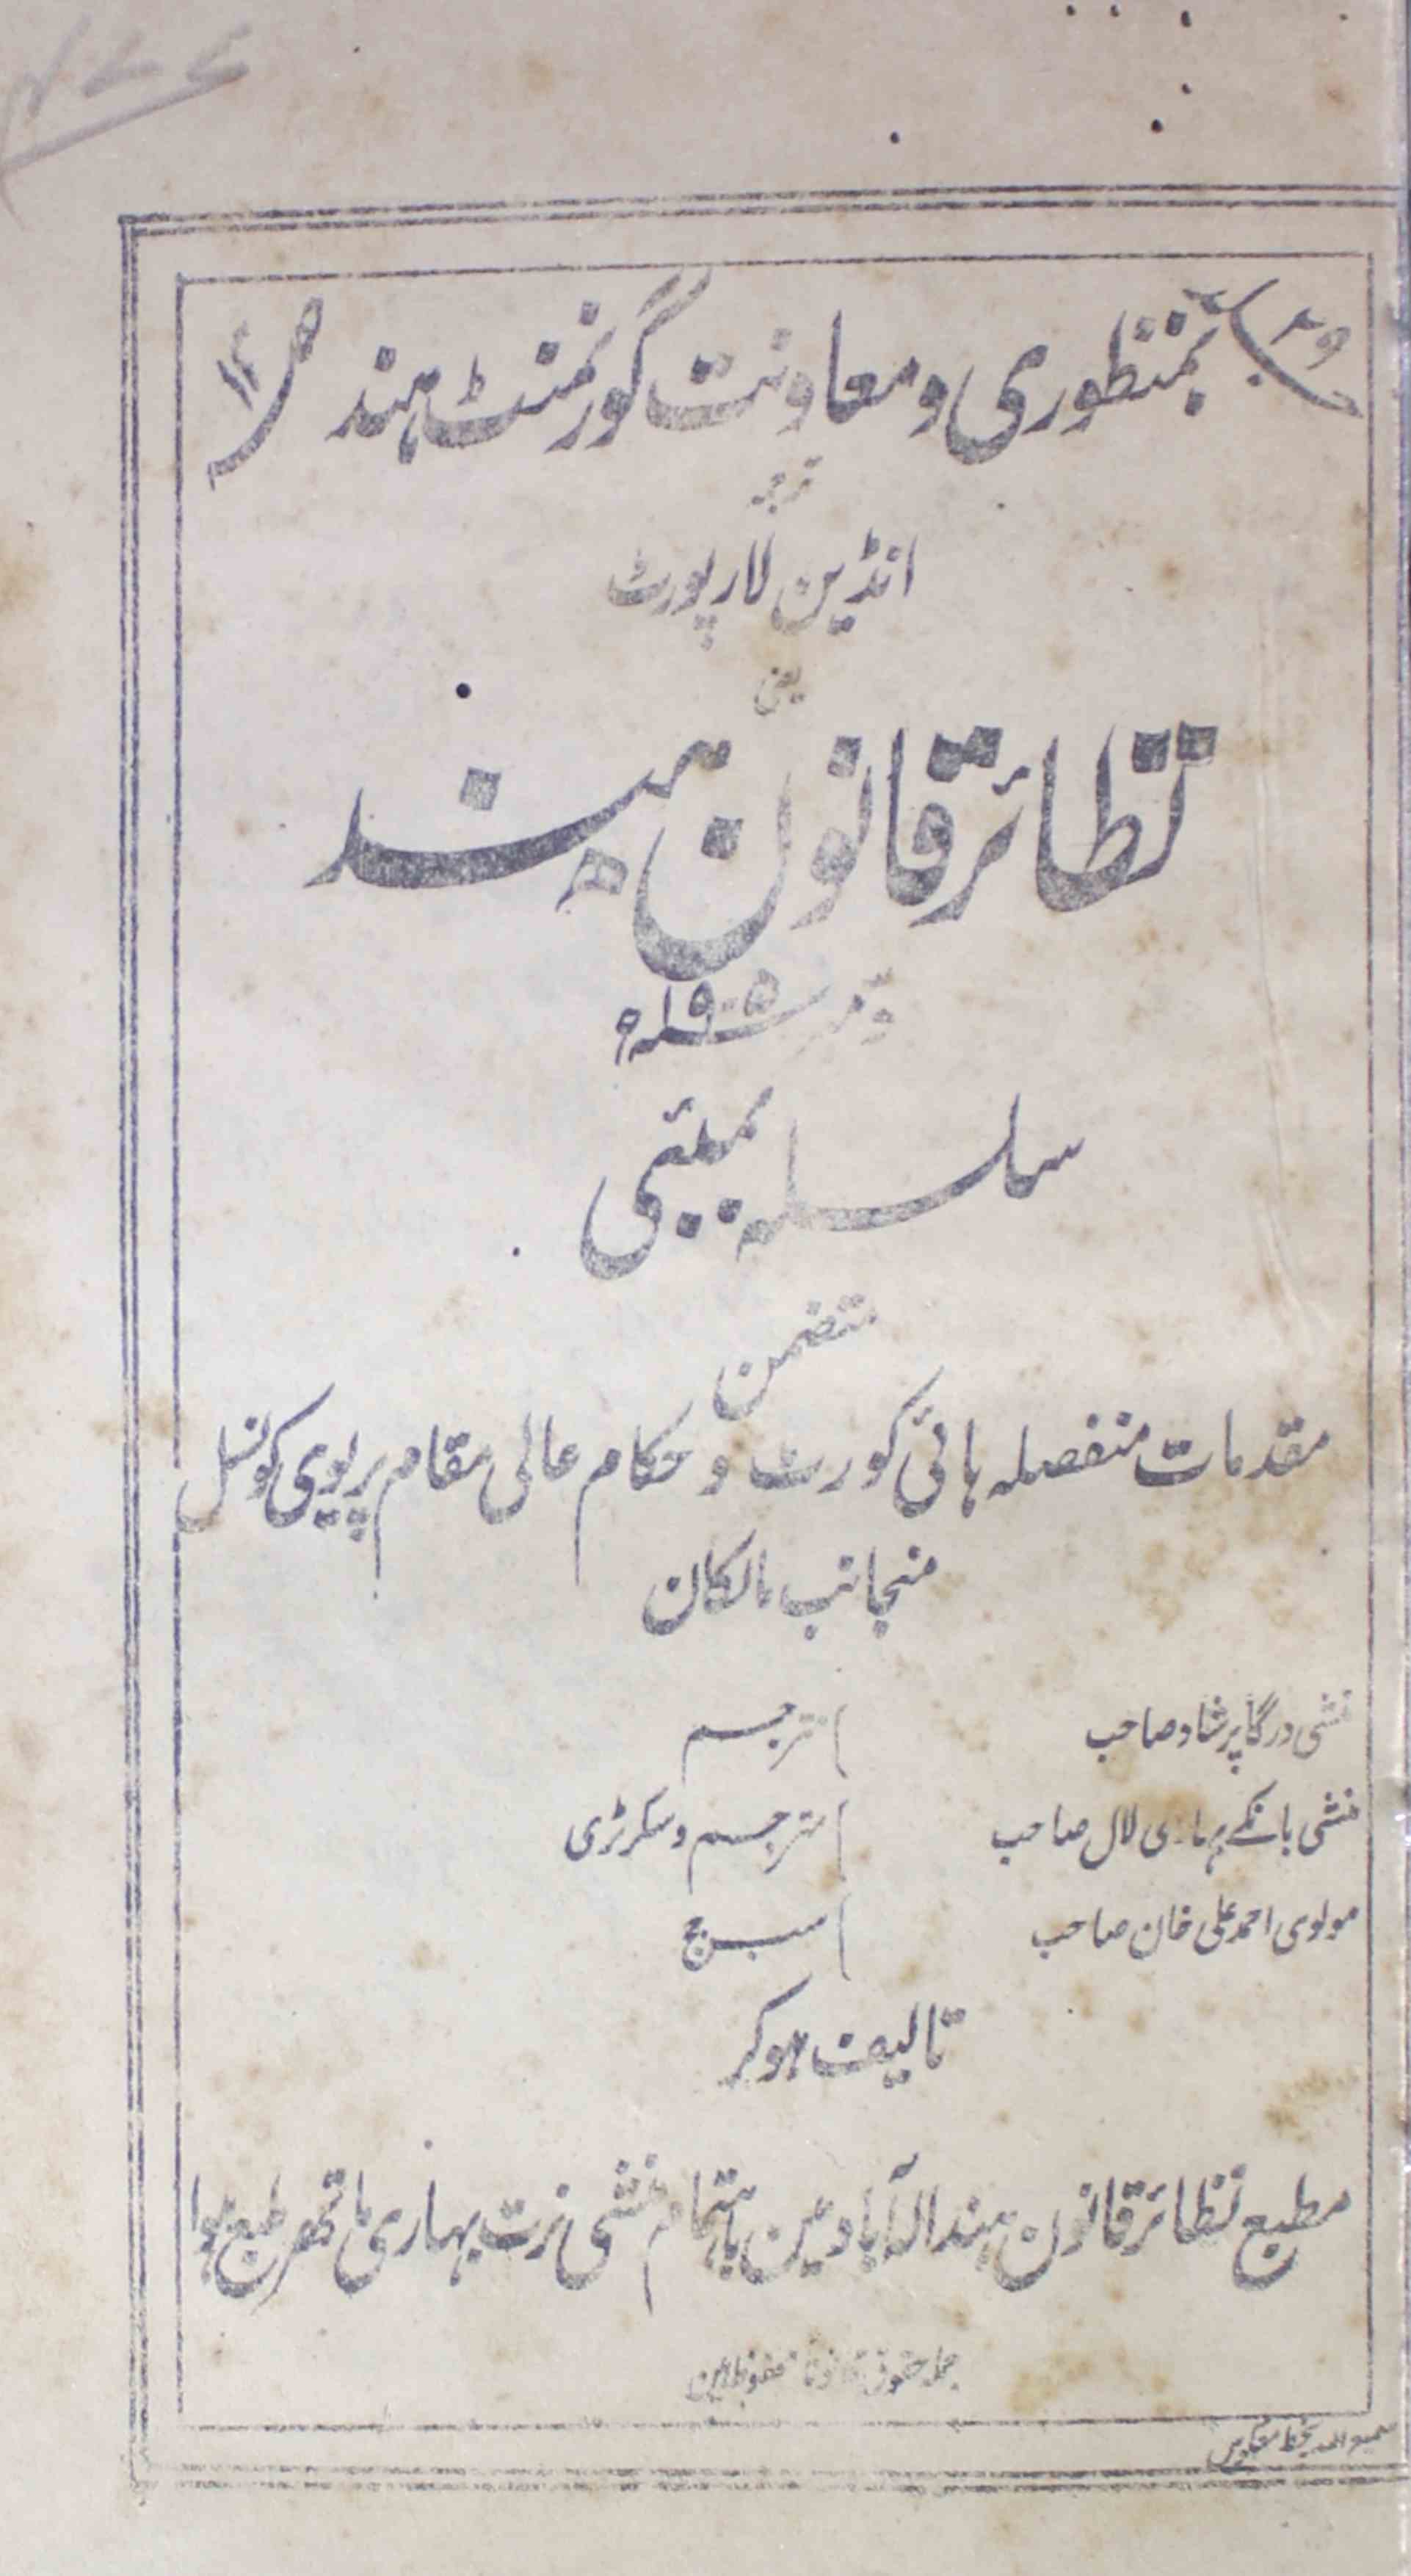 بمنظوری و معاونت گورنمنٹ ہند
ترجمہ
انڈین لا رپورٹ
یعنی
نظائر قانون ہند
۱۹۰۵ء
سلسلہ بمبئی
متضمن
مقدمات منفصلہ ہائی کورٹ و حکام عالی مقام پریوی کونسل
منجانب مالکان
منشی درگا پرشاد صاحب مترجم
منشی بانکے بہاری لال صاحب مترجم و سکرٹری
مولوی احمد علی خان صاحب سب جج
تالیف ہوکر
مطبع نظائر قانون ہند الہ آباد مین باہتمام منشی نرت بہاری ماتھر طبع ہوا
جملہ حقوق قانوناً محفوظ ہین